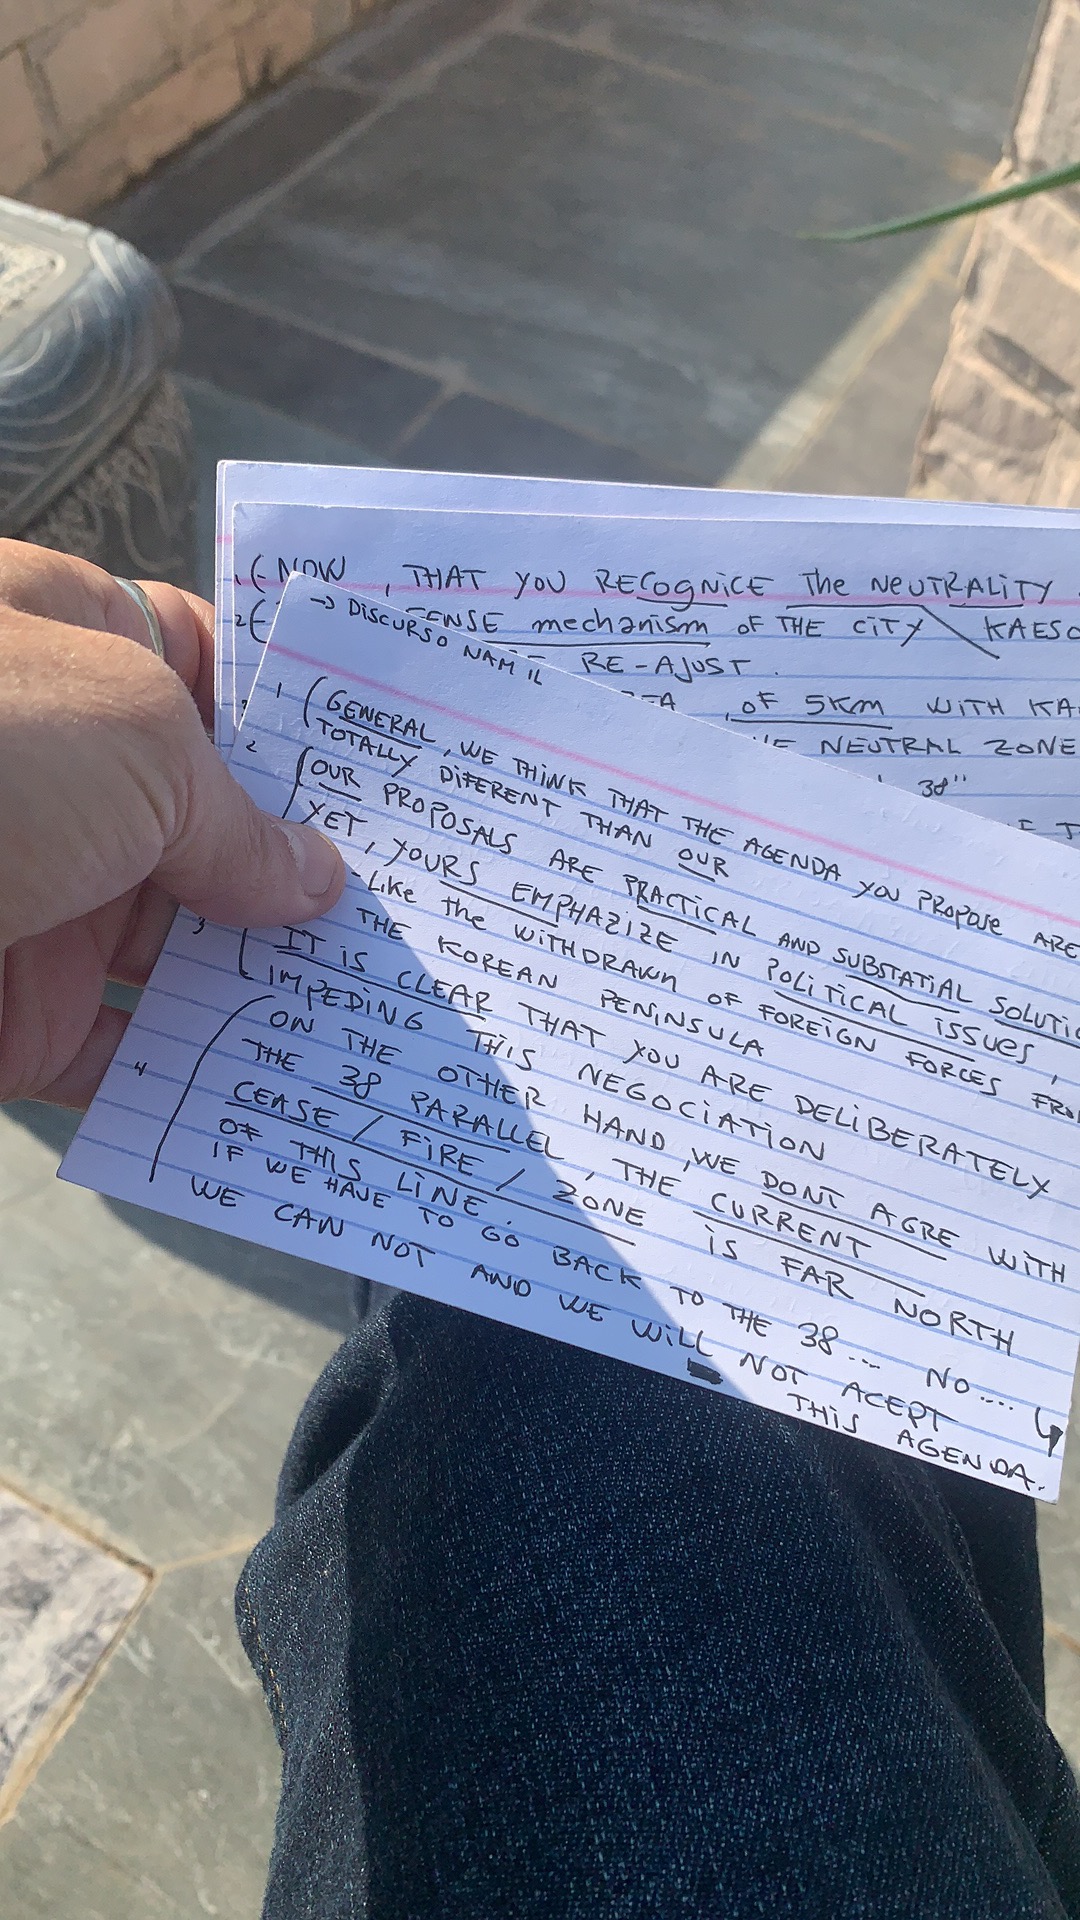 1 (- NOW , THAT YOU RECOGNICE The NEUTRALITY
2 ( mechanism OF THE CITY KAESO
RE-AJUST.
OF 5KM WITH KA
NEUTRAL ZONE
38"
→ DISCURSO NAM IL
1 (GENERAL, WE THINK THAT THE AGENDA YOU PROPOSE ARE
TOTALLY DIFERENT THAN OUR
2 (OUR PROPOSALS ARE PRACTICAL AND SUBSTATIAL SOLUTIO
YET, YOURS EMPHAZIZE IN POLITICAL ISSUES,
- Like the WITHDRAWN OF FOREIGN FORCES FRO
THE KOREAN PENINSULA
3 IT IS CLEAR THAT YOU ARE DELIBERATELY
IMPEDING THIS NEGOCIATION
4 ON THE OTHER HAND, WE DONT AGRE WITH
THE 38 PARALLEL, THE CURRENT
CEASE / FIRE / ZONE IS FAR NORTH
OF THIS LINE.
IF WE HAVE TO GO BACK TO THE 38... NO....
WE CAN NOT AND WE WILL NOT ACEPT
THIS AGENDA.